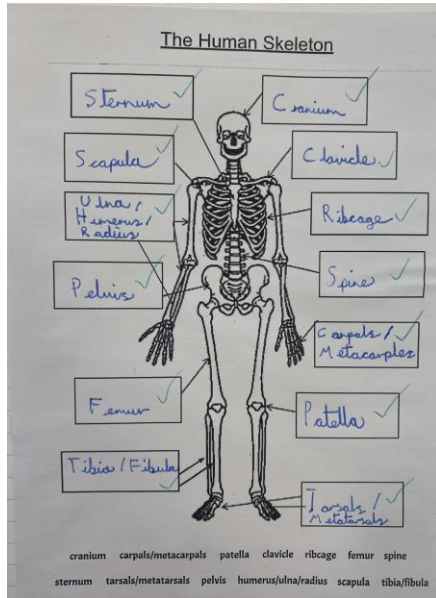 The Human Skeleton
Sternum
Cranium
Scapula
Clavicle
Ulna/
Humerus/
Radius
Ribcage
Pelvis
Spine
Carpals/
Metacarples
Femur
Patella
Tibia/Fibula
Tarsals/
Metatarsals
cranium carpals/metacarpals patella clavicle ribcage femur spine
sternum tarsals/metatarsals pelvis humerus/ulna/radius scapula tibia/fibula